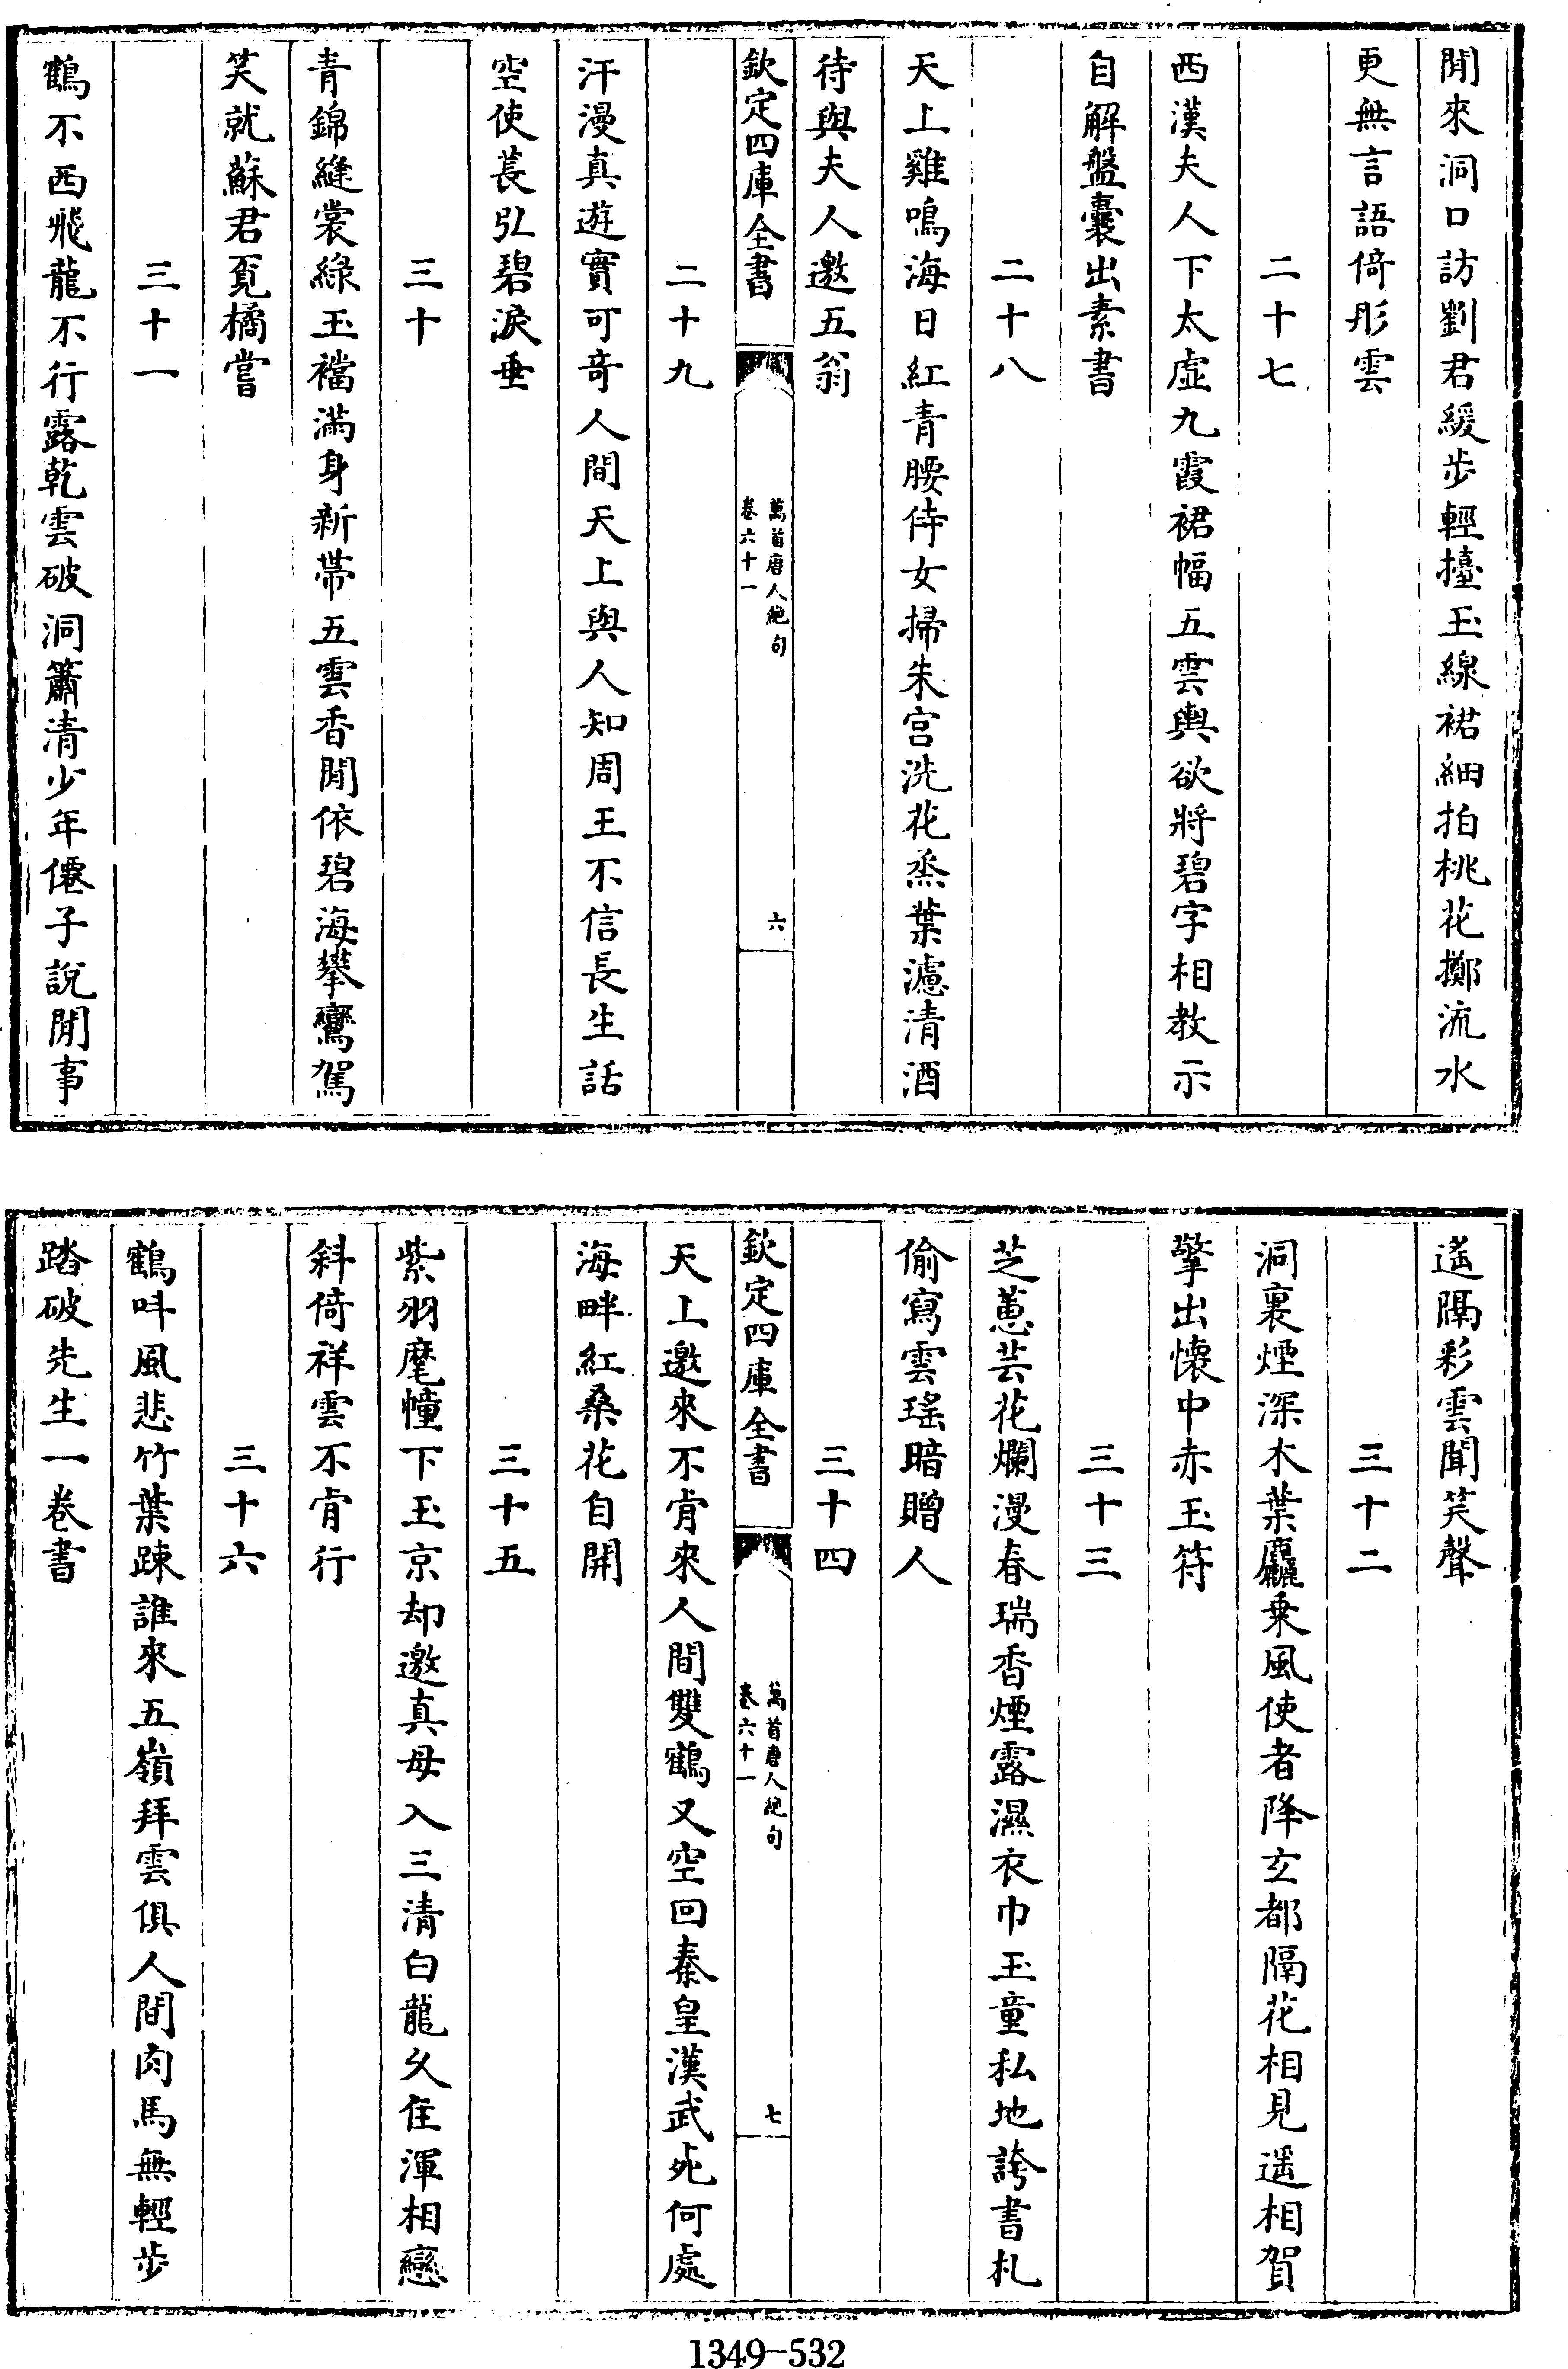 閒來洞口訪劉君緩步輕擡玉線裙細拍桃花擲流水
更無言語倚彤雲
二十七
西漢夫人下太虛九霞裙幅五雲輿欲將碧字相教示
自解盤囊出素書
二十八
天上雞鳴海日紅青腰侍女掃朱宮洗花烝葉濾清酒
待與夫人邀五翁
欽定四庫全書
萬首唐人絶句
卷六十一
六
二十九
汗漫真遊實可奇人間天上與人知周王不信長生話
空使萇弘碧淚垂
三十
青錦縫裳綠玉襠滿身新帶五雲香閒依碧海攀鸞駕
笑就蘇君覓橘嘗
三十一
鶴不西飛龍不行露乾雲破洞簫清少年僊子說閒事
遙隔彩雲聞笑聲
三十二
洞裏煙深木葉麤乗風使者降玄都隔花相見遥相賀
擎出懷中赤玉符
三十三
芝蕙芸花爛漫春瑞香煙露濕衣巾玉童私地誇書札
偷寫雲瑤暗贈人
三十四
欽定四庫全書
萬首唐人絶句
卷六十一
七
天上邀來不肯來人間雙鶴又空回秦皇漢武死何處
海畔紅桑花自開
三十五
紫羽麾幢下玉京却邀真母入三清白龍久住渾相戀
斜倚祥雲不肯行
三十六
鶴呌風悲竹葉踈誰來五嶺拜雲俱人間肉馬無輕步
踏破先生一卷書
1349-532